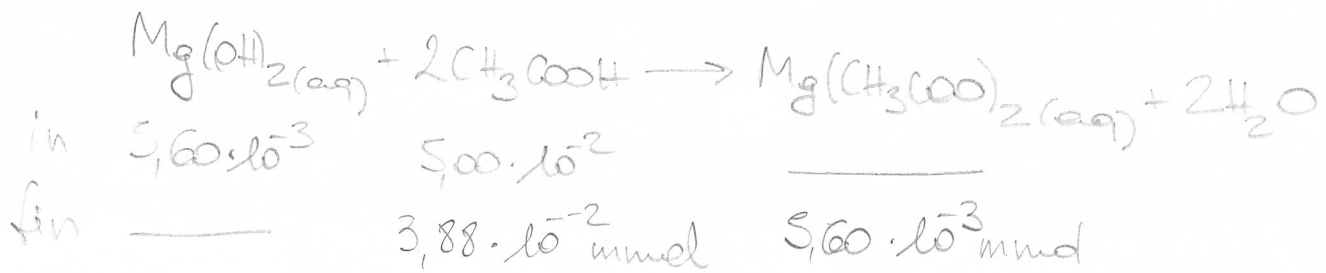 Mg(OH)₂(aq) + 2CH₃COOH → Mg(CH₃COO)₂(aq) + 2H₂O
in 5,60·10⁻³ 5,00·10⁻² —
fin — 3,88·10⁻² mmol 5,60·10⁻³ mmol